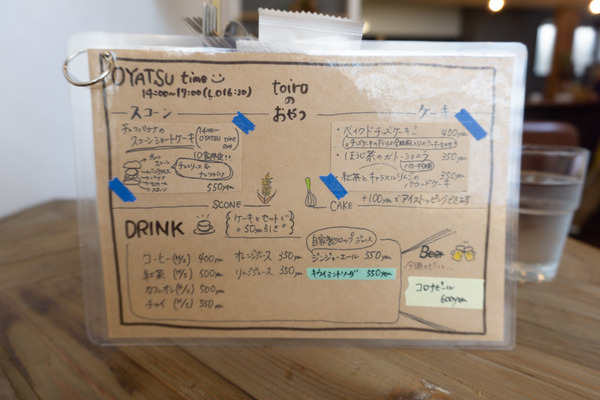 OYATSU time
14:00~17:00(L.O16:30)
toiroの
おやつ
スコーン
チョコバナナの
スコーンショートケーキ
14:00~
OYATSU time
550yen
SCONE
ケーキ
・ベイクドチーズケーキ! 400yen
・ほうじ茶のガトーショコラ 350yen
紅茶とキャラメルりんごの 350yen
パウンドケーキ
CAKE
+100yenでアイストッピングできます
DRINK
ケーキとセットで
50m引き
コーヒー(H/I) 400yen
紅茶(H/I) 500yen
カフェオレ(H/I) 500yen
チャイ(H/I) 550yen
オレンジジュース 350yen
りんごジュース 350yen
自家製シロップジュース
ジンジャーエール 550yen
キウイミントソーダ 550yen
Beer
今週のビール...
コロナビール
600yen